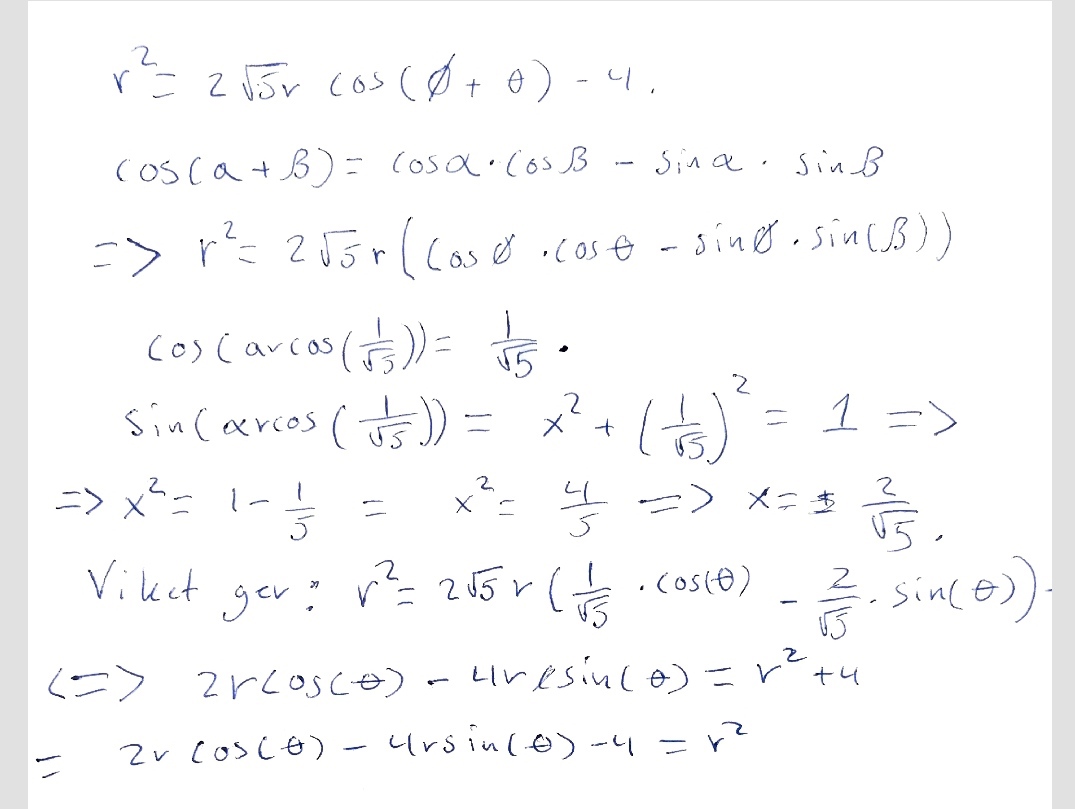 r² = 2√5r cos(Ø + θ) - 4.
cos(a + β) = cosα · cosβ - sinα · sinβ
=> r² = 2√5r(cosØ · cosθ - sinØ · sin(β))
cos(arcos(1/√5)) = 1/√5 .
sin(arcos(1/√5)) = x² + (1/√5)² = 1 =>
=> x² = 1 - 1/5 = x² = 4/5 => x = ± 2/√5 .
Vilket ger: r² = 2√5 r (1/√5 · cos(θ) - 2/√5 · sin(θ)) -
<=> 2rcos(θ) - 4r sin(θ) = r² + 4
= 2r cos(θ) - 4rsin(θ) - 4 = r²